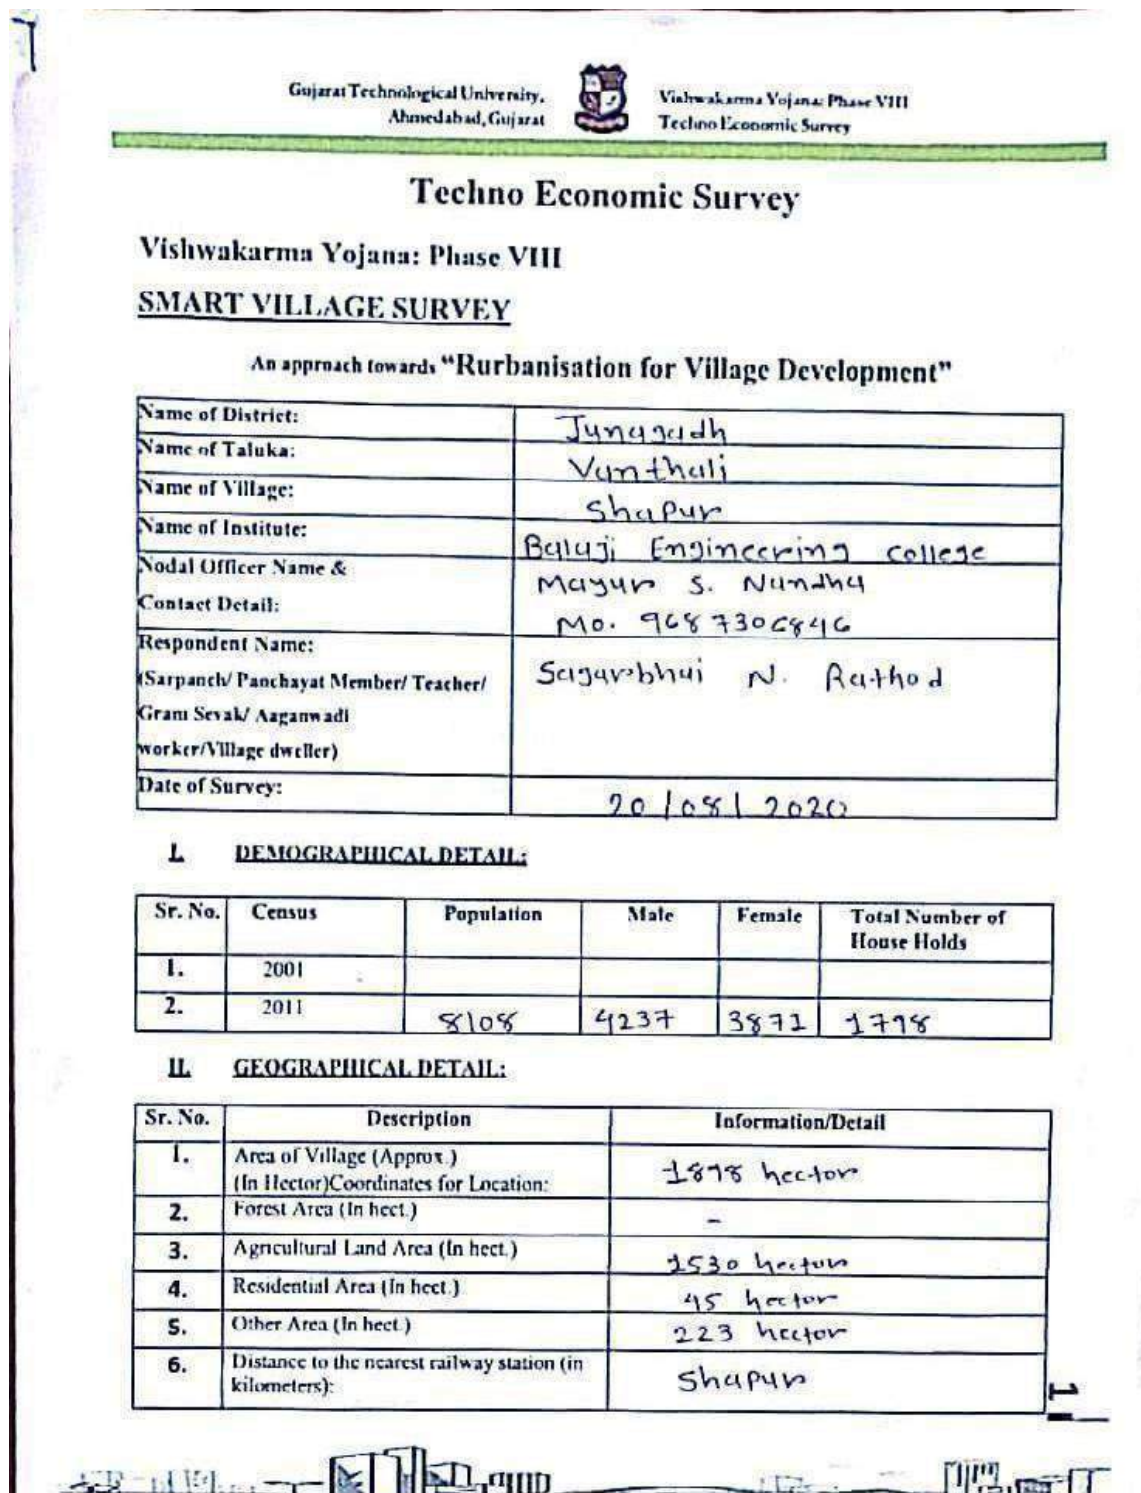 Gujarat Technological University,
Ahmedabad, Gujarat
Vishwakarma Yojana: Phase VIII
Techno Economic Survey
Techno Economic Survey
Vishwakarma Yojana: Phase VIII
SMART VILLAGE SURVEY
An approach towards “Rurbanisation for Village Development”
Name of District: Junagadh
Name of Taluka: Vanthali
Name of Village: Shapur
Name of Institute: Balaji Engineering college
Nodal Officer Name & Mayur S. Nandha
Contact Detail: Mo. 9687306846
Respondent Name: Sagarbhai N. Rathod
(Sarpanch/ Panchayat Member/ Teacher/
Gram Sevak/ Aaganwadi
worker/Village dweller)
Date of Survey: 20/08/2020
I. DEMOGRAPHICAL DETAIL:
Sr. No. Census Population Male Female Total Number of
House Holds
1. 2001
2. 2011 8108 4237 3871 1798
II. GEOGRAPHICAL DETAIL:
Sr. No. Description Information/Detail
1. Area of Village (Approx.)
(In Hector)Coordinates for Location: 1898 hector
2. Forest Area (In hect.) -
3. Agricultural Land Area (In hect.) 1530 hector
4. Residential Area (In hect.) 45 hector
5. Other Area (In hect.) 223 hector
6. Distance to the nearest railway station (in
kilometers): Shapur
1